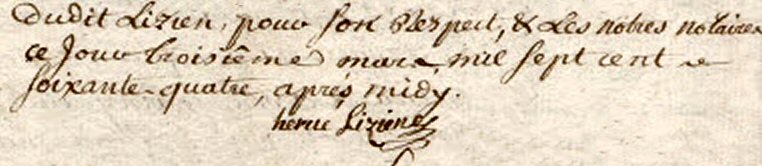 dudit Lizien, pour son Respect, & Les notres notaires
ce Jour troisième mars, mil sept cent
soixante-quatre, après midy.
herue Lizien